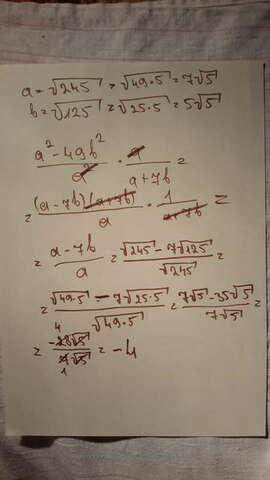 a = √245 = √49·5 = 7√5
b = √125 = √25·5 = 5√5
(a² - 49b²)/a² · a/(a + 7b) =
= (a - 7b)(a+7b)/a · 1/(a+7b) =
= (a - 7b)/a = (√245 - 7√125)/√245 =
= (√49·5 - 7√25·5)/√49·5 = (7√5 - 35√5)/7√5 =
= -28√5/7√5 = -4